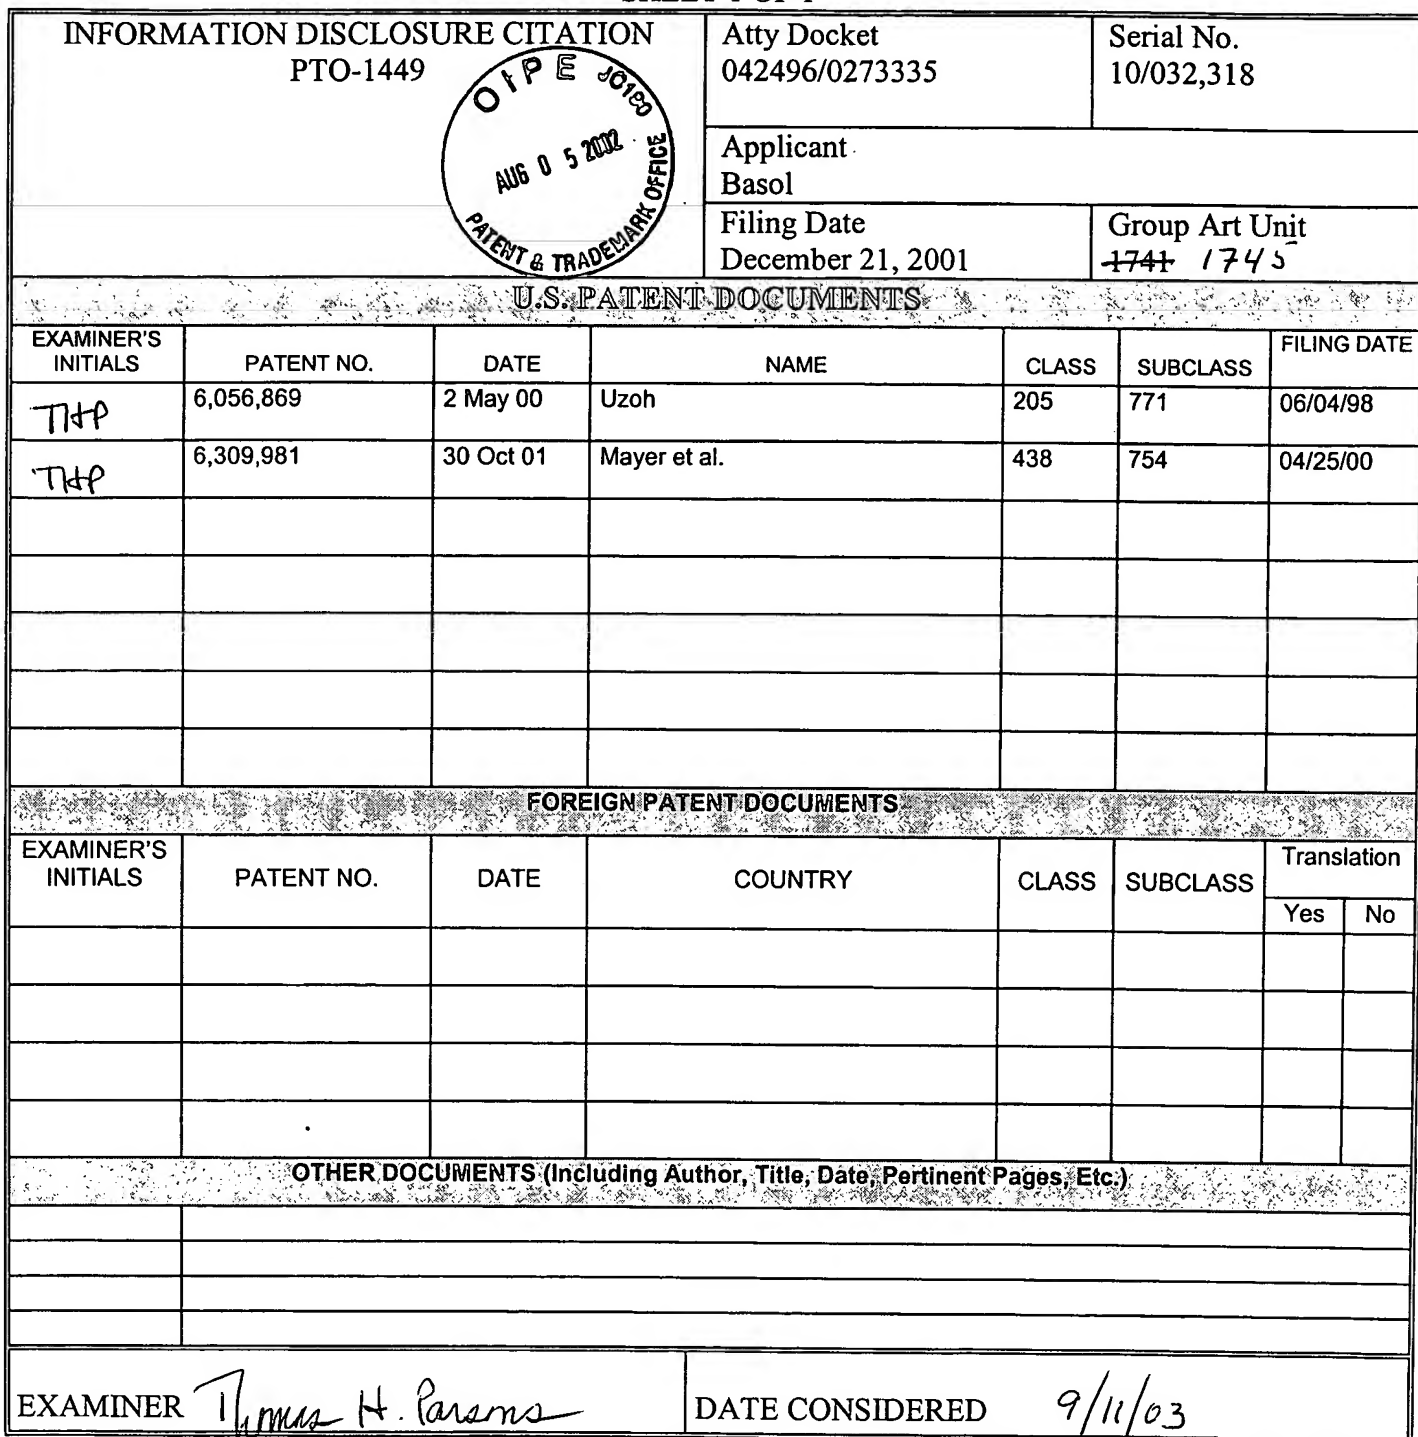 INFORMATION DISCLOSURE CITATION
PTO-1449
OIPE JC180
AUG 0 5 2002
PATENT & TRADEMARK OFFICE
Atty Docket
042496/0273335
Serial No.
10/032,318
Applicant
Basol
Filing Date
December 21, 2001
Group Art Unit
1741 1745
U.S. PATENT DOCUMENTS
EXAMINER'S INITIALS PATENT NO. DATE NAME CLASS SUBCLASS FILING DATE
THP 6,056,869 2 May 00 Uzoh 205 771 06/04/98
THP 6,309,981 30 Oct 01 Mayer et al. 438 754 04/25/00
FOREIGN PATENT DOCUMENTS
EXAMINER'S INITIALS PATENT NO. DATE COUNTRY CLASS SUBCLASS Translation
Yes No
OTHER DOCUMENTS (Including Author, Title, Date, Pertinent Pages, Etc.)
EXAMINER Thomas H. Parsons DATE CONSIDERED 9/11/03